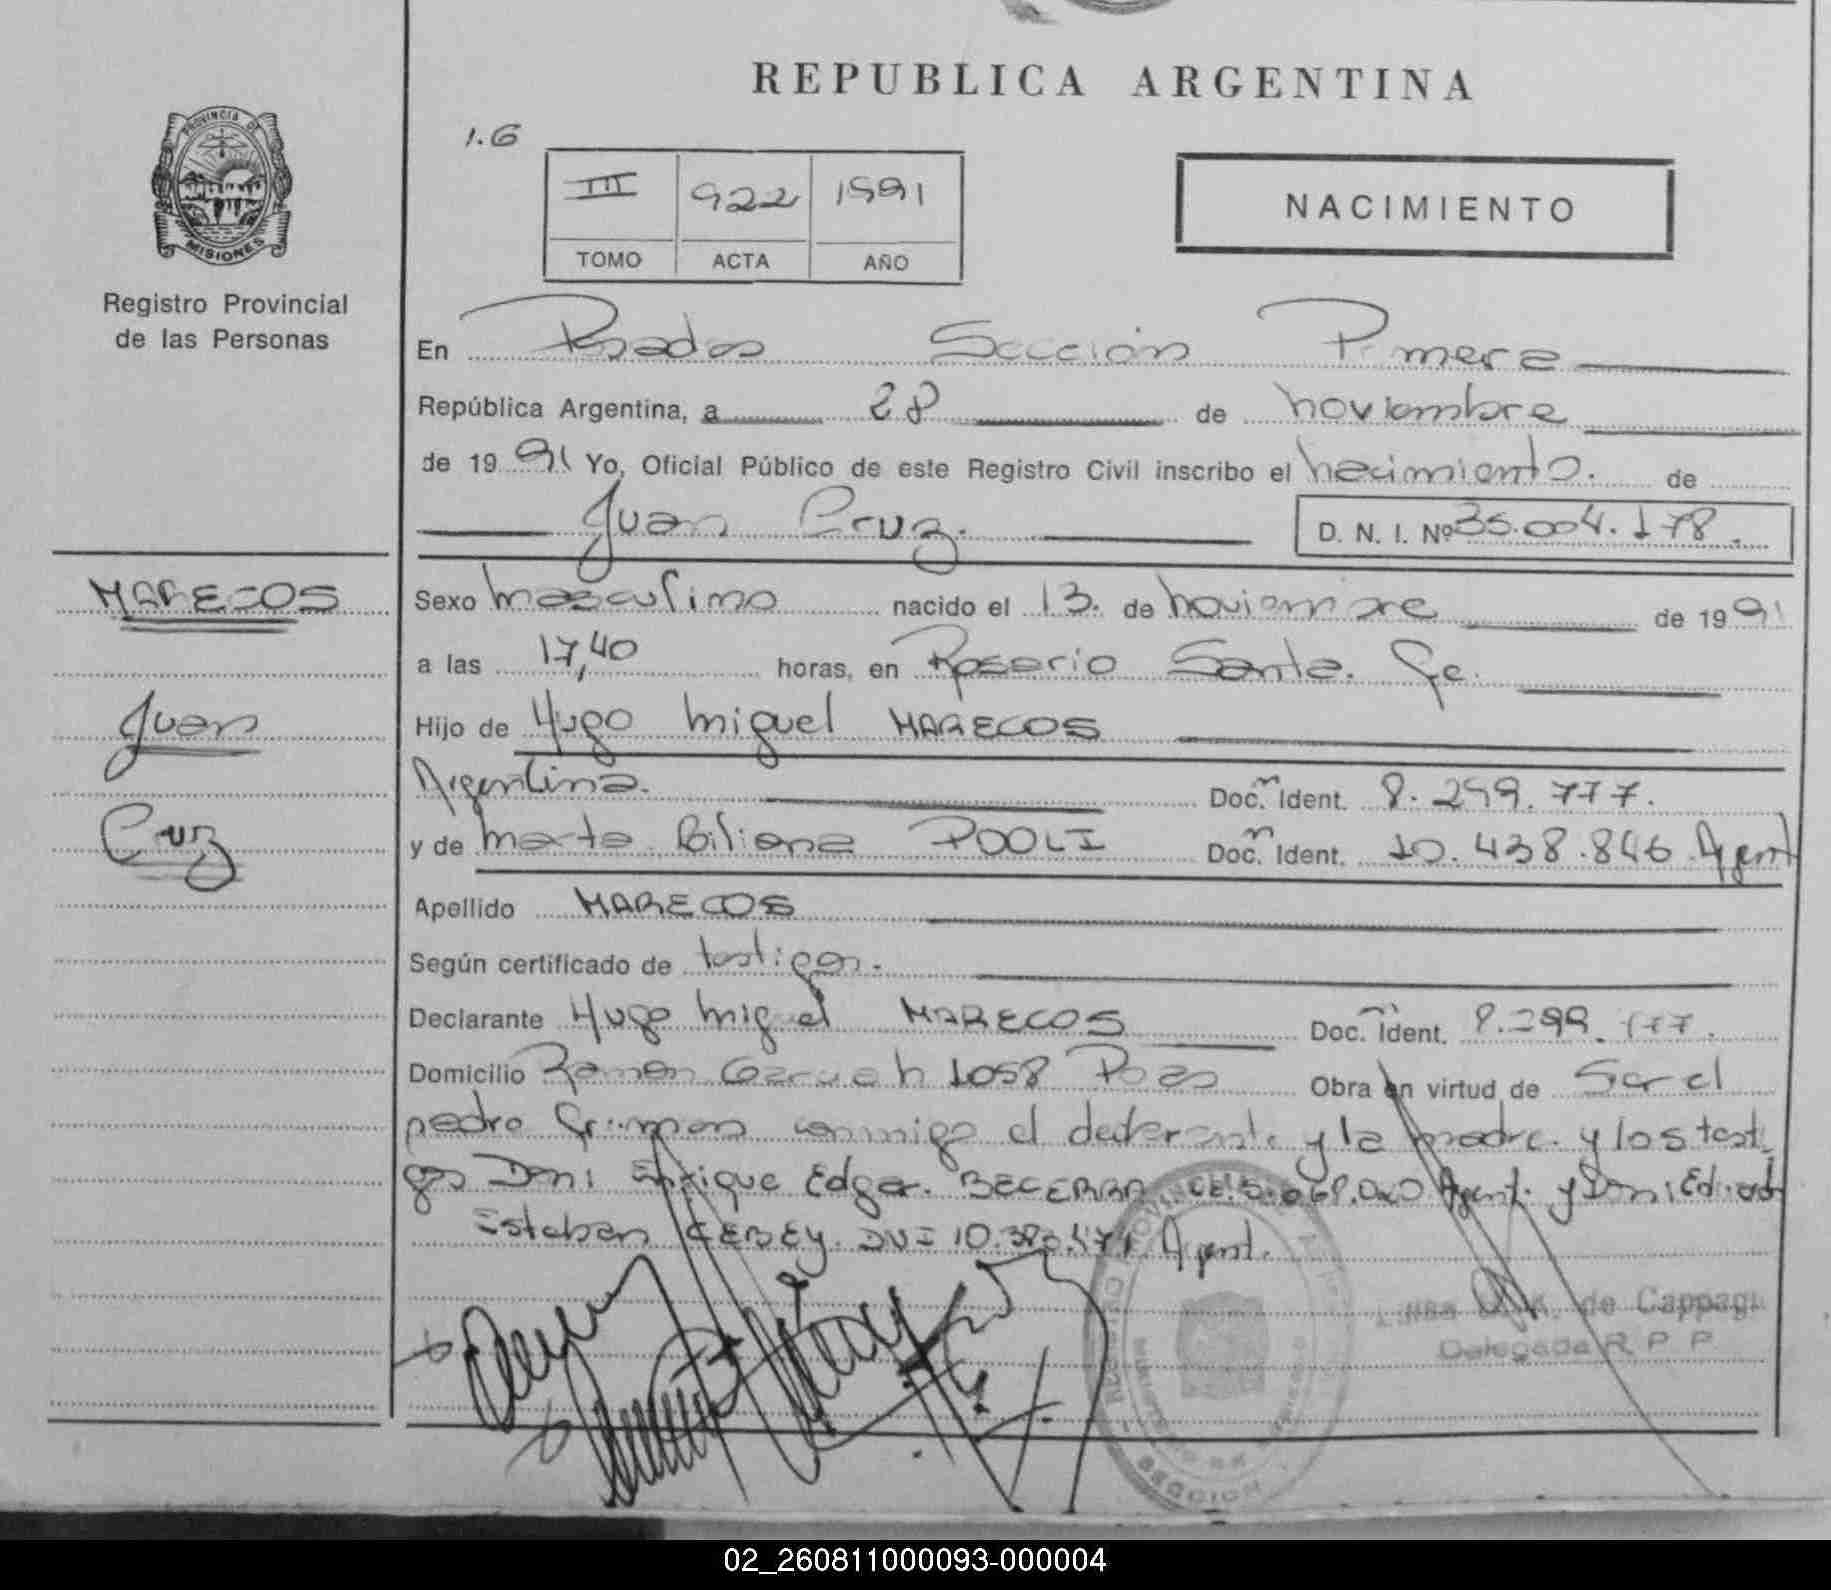 REPUBLICA ARGENTINA
PROVINCIA DE
MISIONES
Registro Provincial
de las Personas
1.G
III 922 1991
TOMO ACTA AÑO
NACIMIENTO
En Posadas Sección Primera
República Argentina, a 28 de noviembre
de 1991 Yo, Oficial Público de este Registro Civil inscribo el nacimiento. de
Juan Cruz.
D. N. I. Nº 35.004.178.
MARECOS
Juan
Cruz
Sexo masculino nacido el 13. de noviembre de 1991
a las 17,40 horas, en Rosario Santa. Fe.
Hijo de Hugo Miguel MARECOS
Argentina. Doc. Ident. 8.299.777.
y de Marta Biliana POOLI Doc. Ident. 10.438.846 Argent
Apellido MARECOS
Según certificado de testigos.
Declarante Hugo Miguel MARECOS Doc. Ident. 8.299.777.
Domicilio Ramon 1058 Pozas Obra en virtud de Ser el
padre conmigo el declarante y la madre. y los testi
gos Don: Enrique Edgar. BECERRA Argent. y Don: Eduardo
Esteban DNI Argent.
de Cappagli
Delegada R. P. P.
SECCION
02_260811000093-000004